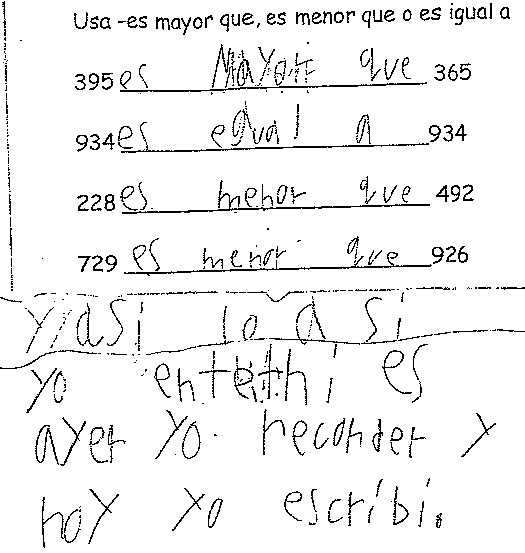 Usa -es mayor que, es menor que o es igual a
395 es Mayor que 365
934 es egual a 934
228 es menor que 492
729 es menor que 926
y asi lo a si
yo es
ayer yo recorder y
hoy yo escribi.